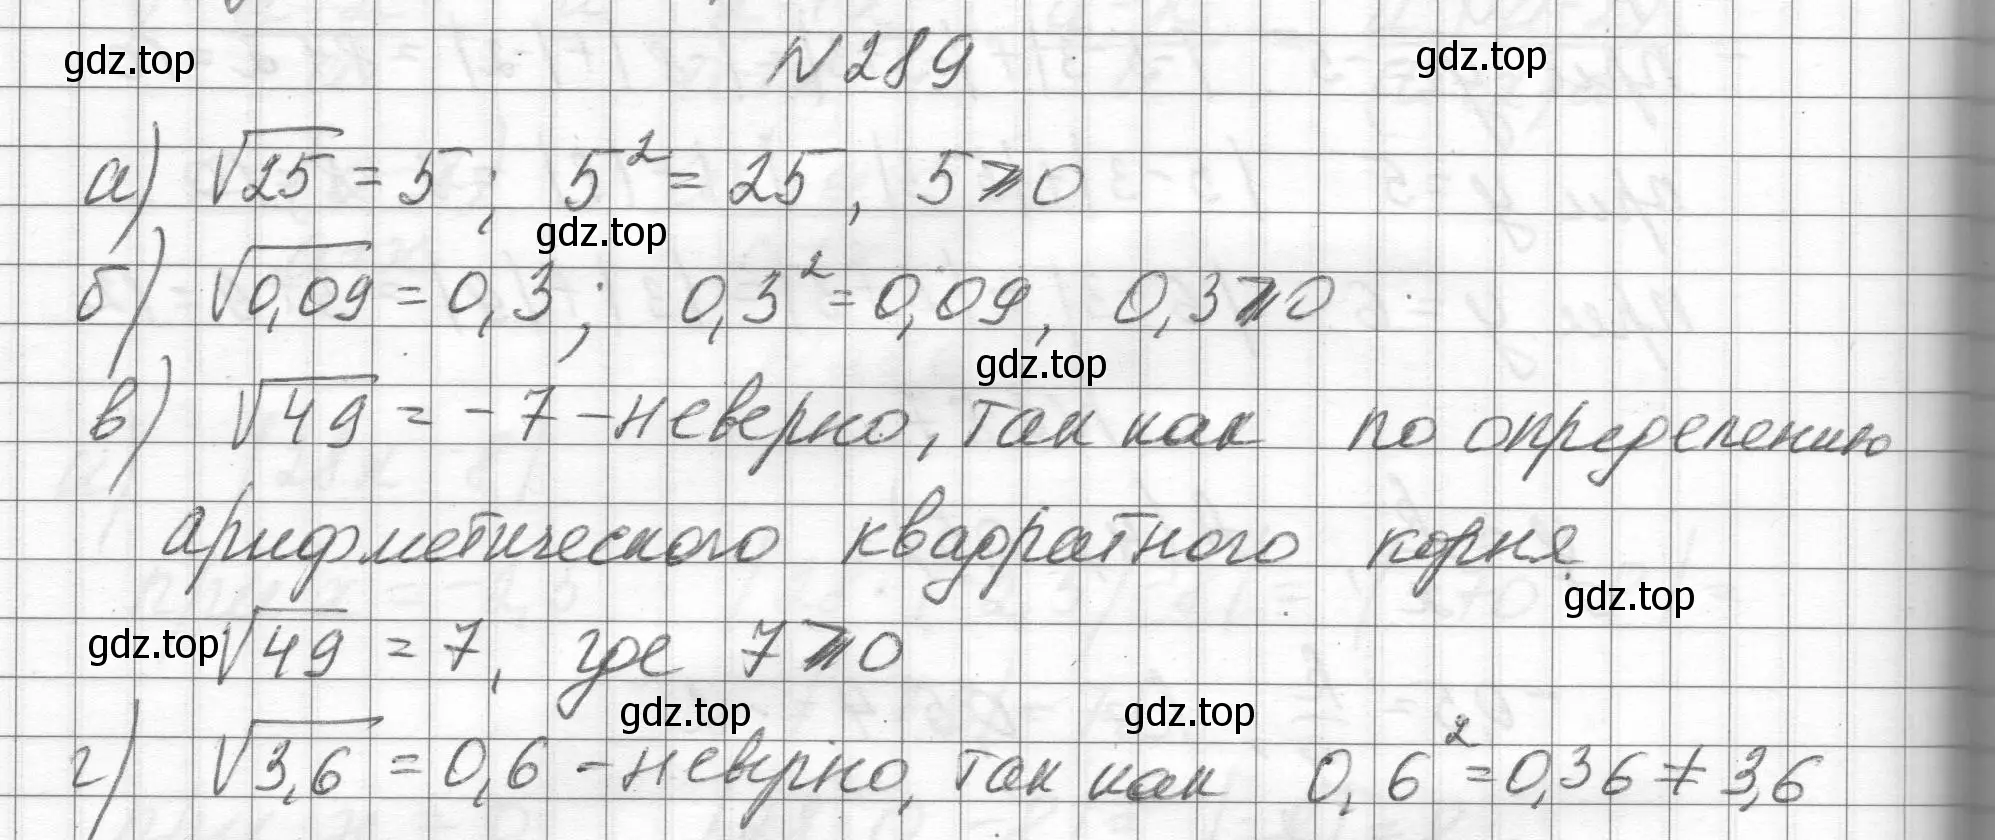 gdz.top № 289 gdz.top
а) √25 = 5; 5² = 25, 5 ⩾ 0
gdz.top
б) √0,09 = 0,3; 0,3² = 0,09, 0,3 ⩾ 0
gdz.top
в) √49 = -7 - неверно, так как по определению
арифметического квадратного корня
gdz.top
gdz.top √49 = 7, где 7 ⩾ 0
gdz.top gdz.top
г) √3,6 = 0,6 - неверно, так как 0,6² = 0,36 ≠ 3,6